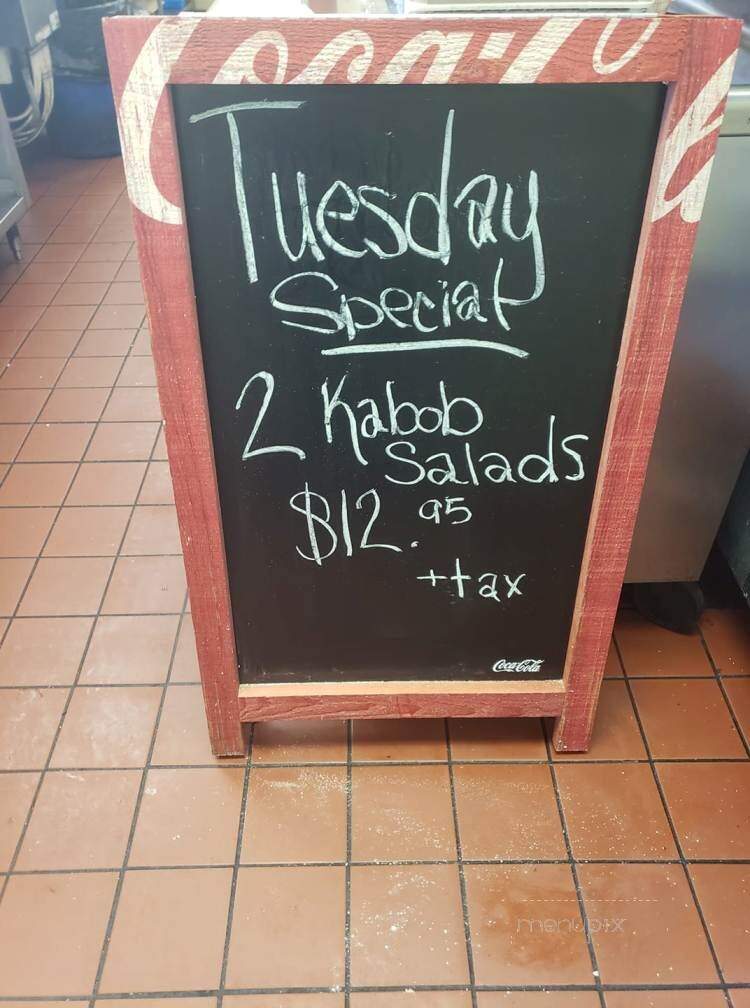 Coca-Cola
Tuesday
Special
2 Kabob
Salads
$12.95
++tax
Coca-Cola
menupix